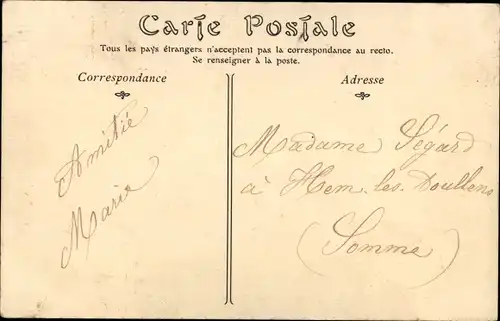 Carte Postale
Tous les pays étrangers n'acceptent pas la correspondance au recto.
Se renseigner à la poste.
Correspondance
Amitié
Marie
Adresse
Madame Ségard
à Hem-les-Doullens
(Somme)